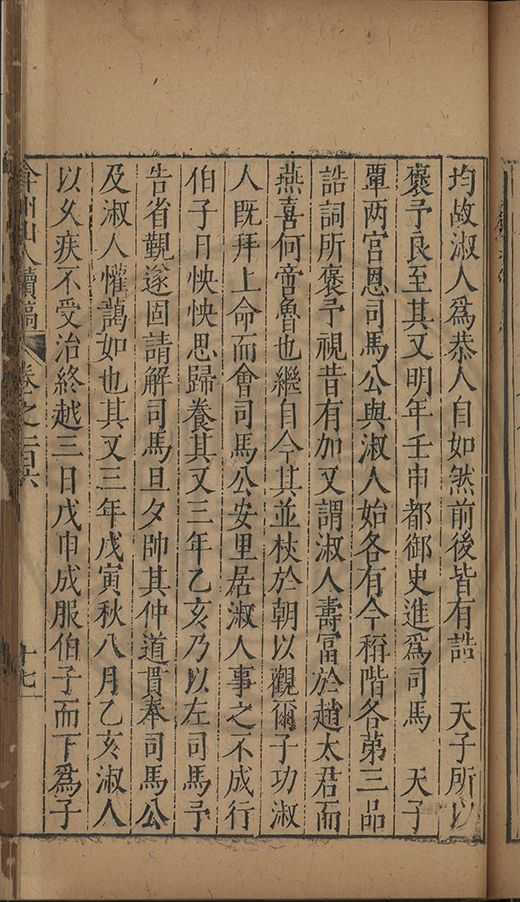 均故淑人爲恭人自如然前後皆有誥　天子所以
褒予良至其又明年壬申都御史進爲司馬　天子
覃两宮恩司馬公與淑人始各有今稱階各第三品
誥詞所褒予視昔有加又謂淑人壽富於趙太君而
燕喜何啻魯也繼自今其並杖於朝以觀爾子功淑
人既拜上命而會司馬公安里居淑人事之不成行
伯子日怏怏思歸養其又三年乙亥乃以左司馬予
告省覲遂固請解司馬旦夕帥其仲道貫奉司馬公
及淑人懽藹如也其又三年戊寅秋八月乙亥淑人
以久疾不受治終越三日戊申成服伯子而下爲子
弇州山人續稿　卷之一百六　十七